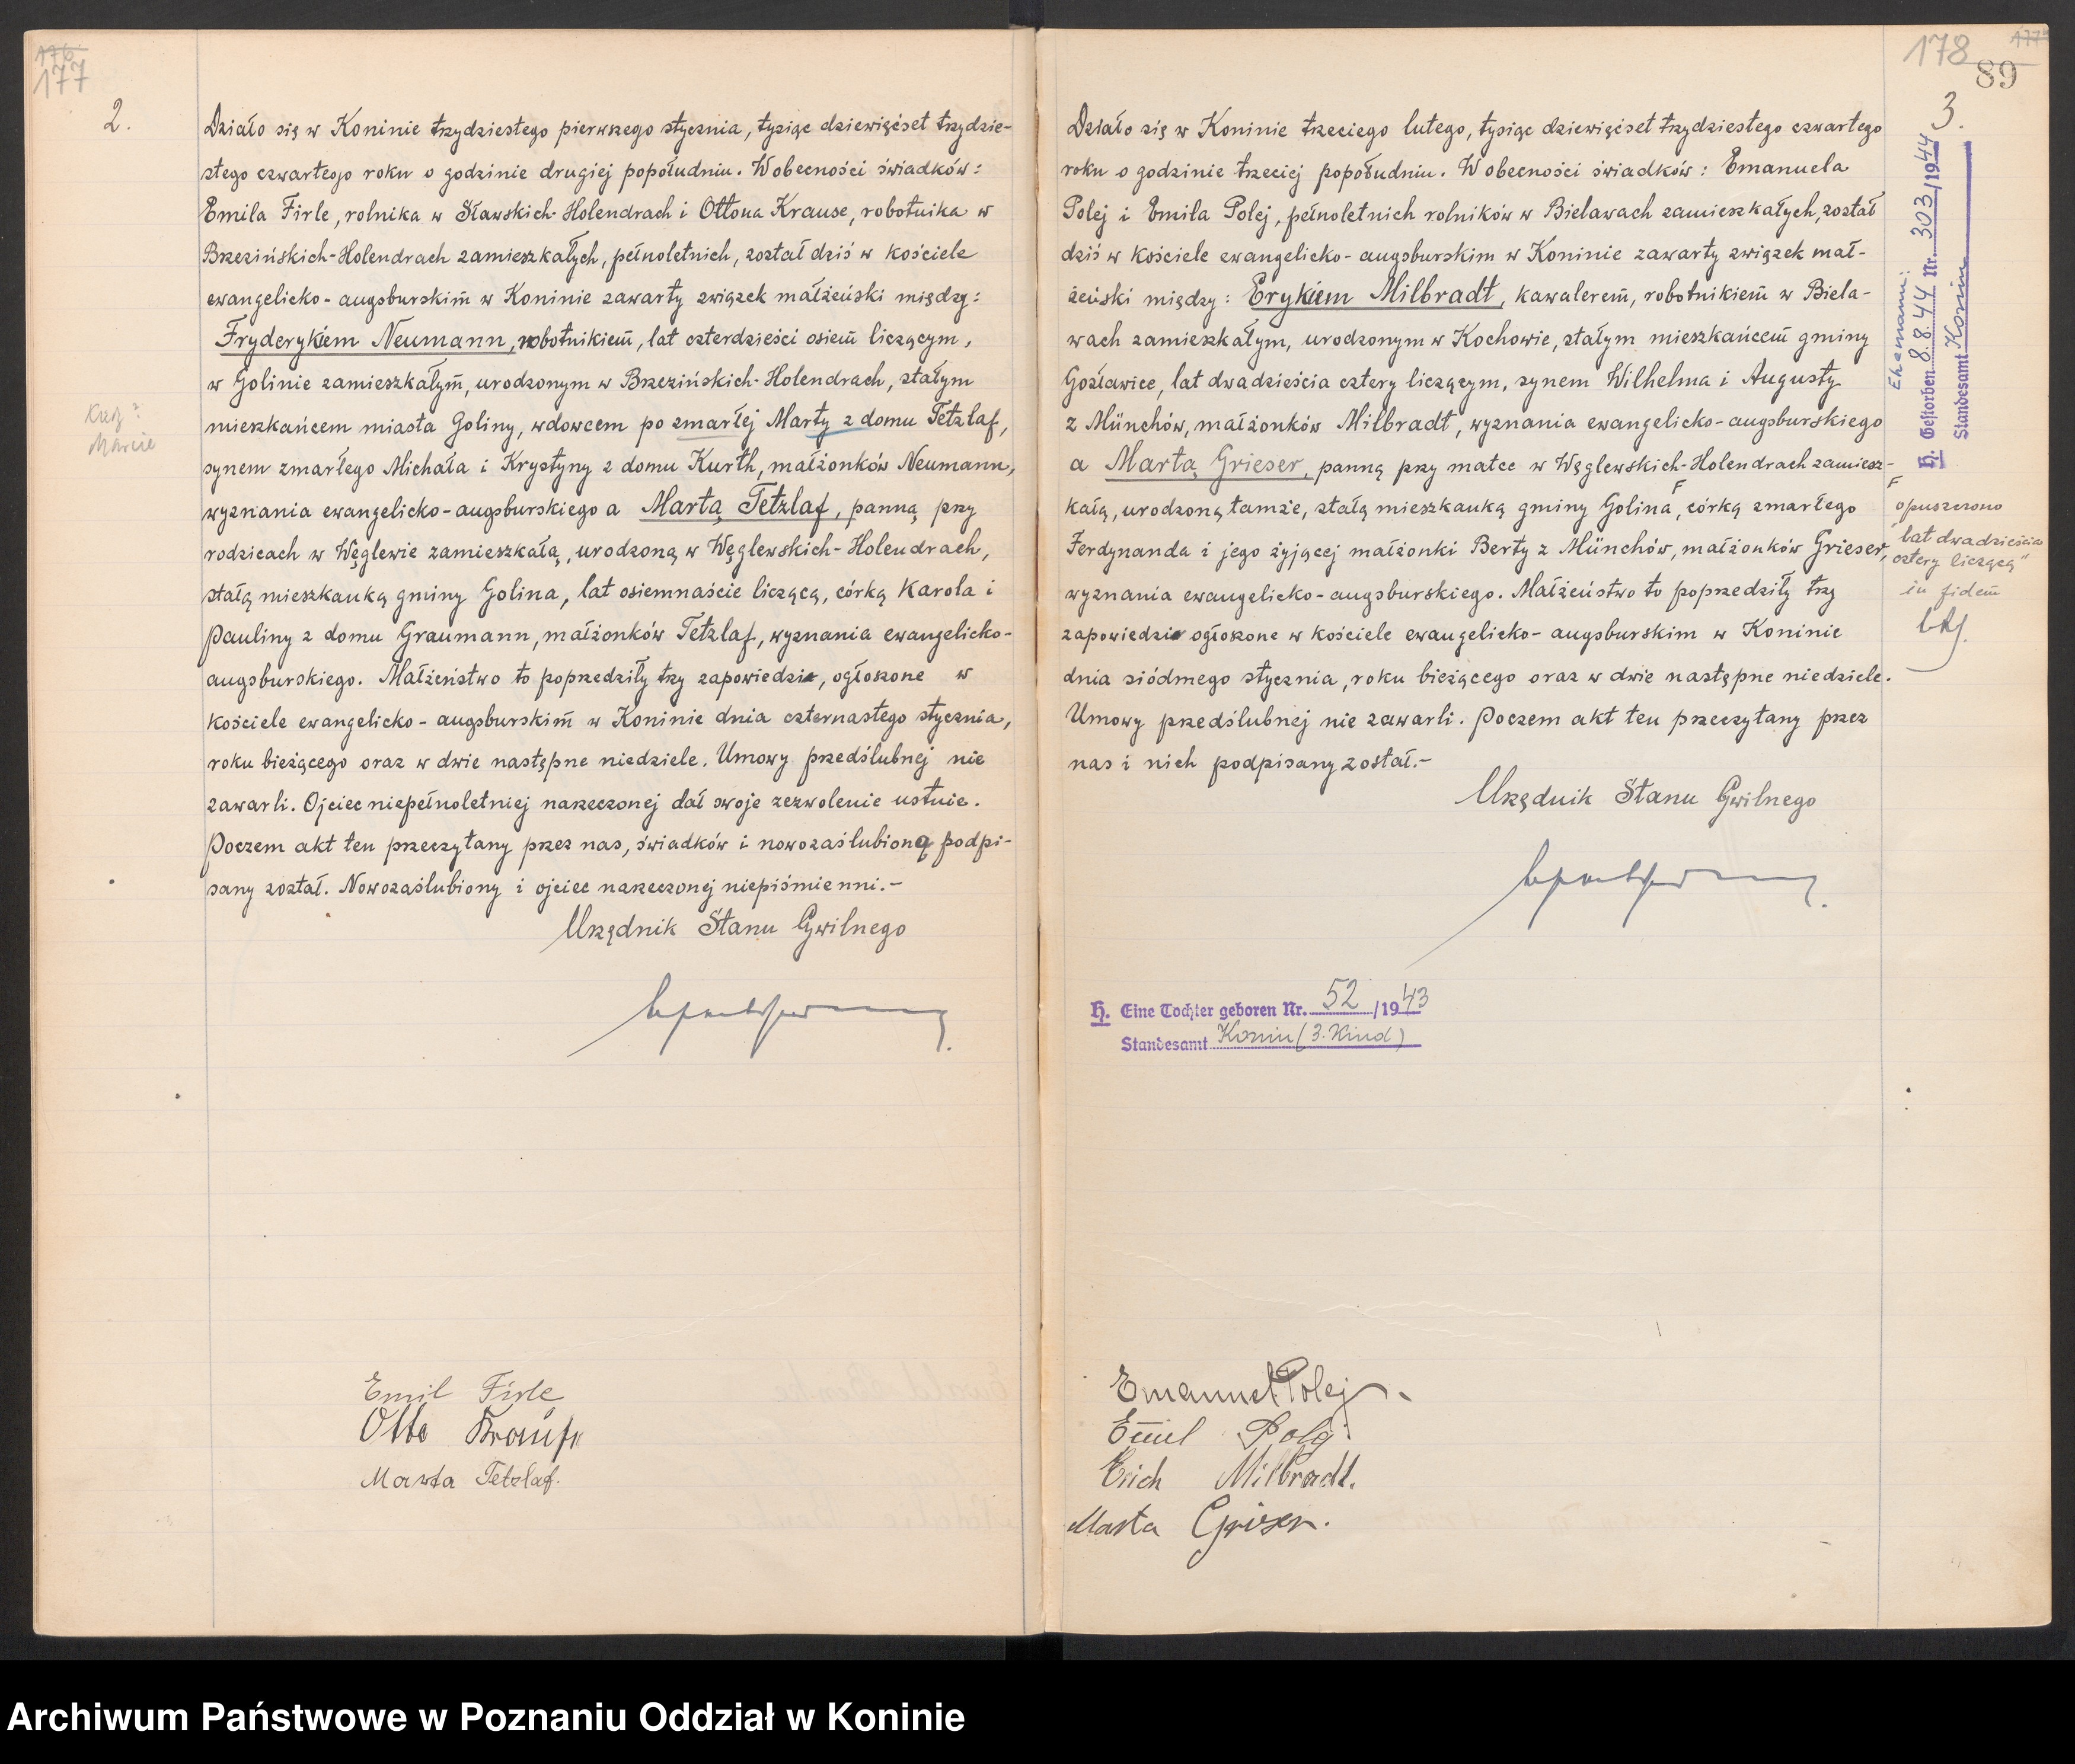 176
177
2.
Działo się w Koninie trzydziestego pierwszego stycznia, tysiąc dziewięćset trzydzie-
stego czwartego roku o godzinie drugiej popołudniu. Wobecności świadków:
Emila Firle, rolnika w Sławskich-Holendrach i Ottona Krause, robotnika w
Brzezińskich-Holendrach zamieszkałych, pełnoletnich, został dziś w kościele
ewangelicko-augsburskim w Koninie zawarty związek małżeński między:
Fryderykiem Neumann, robotnikiem, lat czterdzieści osiem liczącym,
w Golinie zamieszkałym, urodzonym w Brzezińskich-Holendrach, stałym
mieszkańcem miasta Goliny, wdowcem po zmarłej Marty z domu Tetzlaf,
Marcie
synem zmarłego Michała i Krystyny z domu Kurth, małżonków Neumann,
wyznania ewangelicko-augsburskiego a Martą Tetzlaf, panną przy
rodzicach w Węglewie zamieszkałą, urodzoną w Węglewskich-Holendrach,
stałą mieszkanką gminy Golina, lat osiemnaście liczącą, córką Karola i
Pauliny z domu Graumann, małżonków Tetzlaf, wyznania ewangelicko-
augsburskiego. Małżeństwo to poprzedziły trzy zapowiedzie, ogłoszone w
kościele ewangelicko-augsburskim w Koninie dnia czternastego stycznia,
roku bieżącego oraz w dwie następne niedziele. Umowy przedślubnej nie
zawarli. Ojciec niepełnoletniej narzeczonej dał swoje zezwolenie ustnie.
Poczem akt ten przeczytany przez nas, świadków i nowozaślubioną podpi-
sany został. Nowozaślubiony i ojciec narzeczonej niepiśmienni.-
Urzędnik Stanu Cywilnego
Emil Firle
Otto Krause
Marta Tetzlaf.
178
177
89
3.
Działo się w Koninie trzeciego lutego, tysiąc dziewięćset trzydziestego czwartego
roku o godzinie trzeciej popołudniu. W obecności świadków: Emanuela
Polej i Emila Polej, pełnoletnich rolników w Bielawach zamieszkałych, został
dziś w kościele ewangelicko-augsburskim w Koninie zawarty związek mał-
żeński między: Erykiem Milbradt, kawalerem, robotnikiem w Biela-
wach zamieszkałym, urodzonym w Kochowie, stałym mieszkańcem gminy
Gosławice, lat dwadzieścia cztery liczącym, synem Wilhelma i Augusty
z Münchów, małżonków Milbradt, wyznania ewangelicko-augsburskiego
a Martą Grieser, panną przy matce w Węglewskich-Holendrach zamiesz-
kałą, urodzoną tamże, stałą mieszkanką gminy Golina, córką zmarłego
Ferdynanda i jego żyjącej małżonki Berty z Münchów, małżonków Grieser,
wyznania ewangelicko-augsburskiego. Małżeństwo to poprzedziły trzy
zapowiedzie ogłoszone w kościele ewangelicko-augsburskim w Koninie
dnia siódmego stycznia, roku bieżącego oraz w dwie następne niedziele.
Umowy przedślubnej nie zawarli. Poczem akt ten przeczytany przez
nas i nich podpisany został.-
Urzędnik Stanu Cywilnego
Ehemann:
H. Gestorben 8.8.44 Nr. 303/1944
Standesamt Konin
opuszczono
"lat dwadzieścia
cztery liczącą"
in fidem
H. Eine Tochter geboren Nr. 52/1943
Standesamt Konin (3. Kind)
Emanuel Polej
Emil Polej
Erich Milbradt.
Marta Grieser.
Archiwum Państwowe w Poznaniu Oddział w Koninie